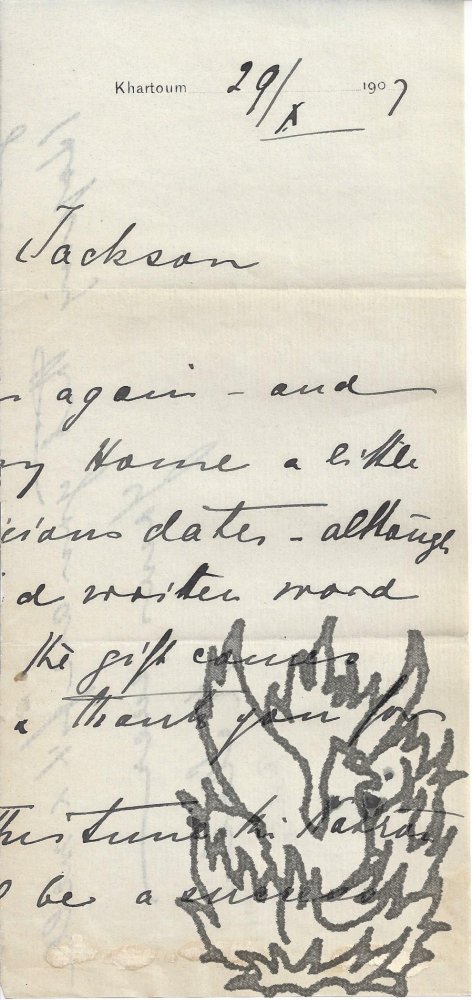 Khartoum 29/X 1907
Jackson
again - and
Home a little
icious dates - although
d written word
the gift comes
a thank you for
this time the
l be a success